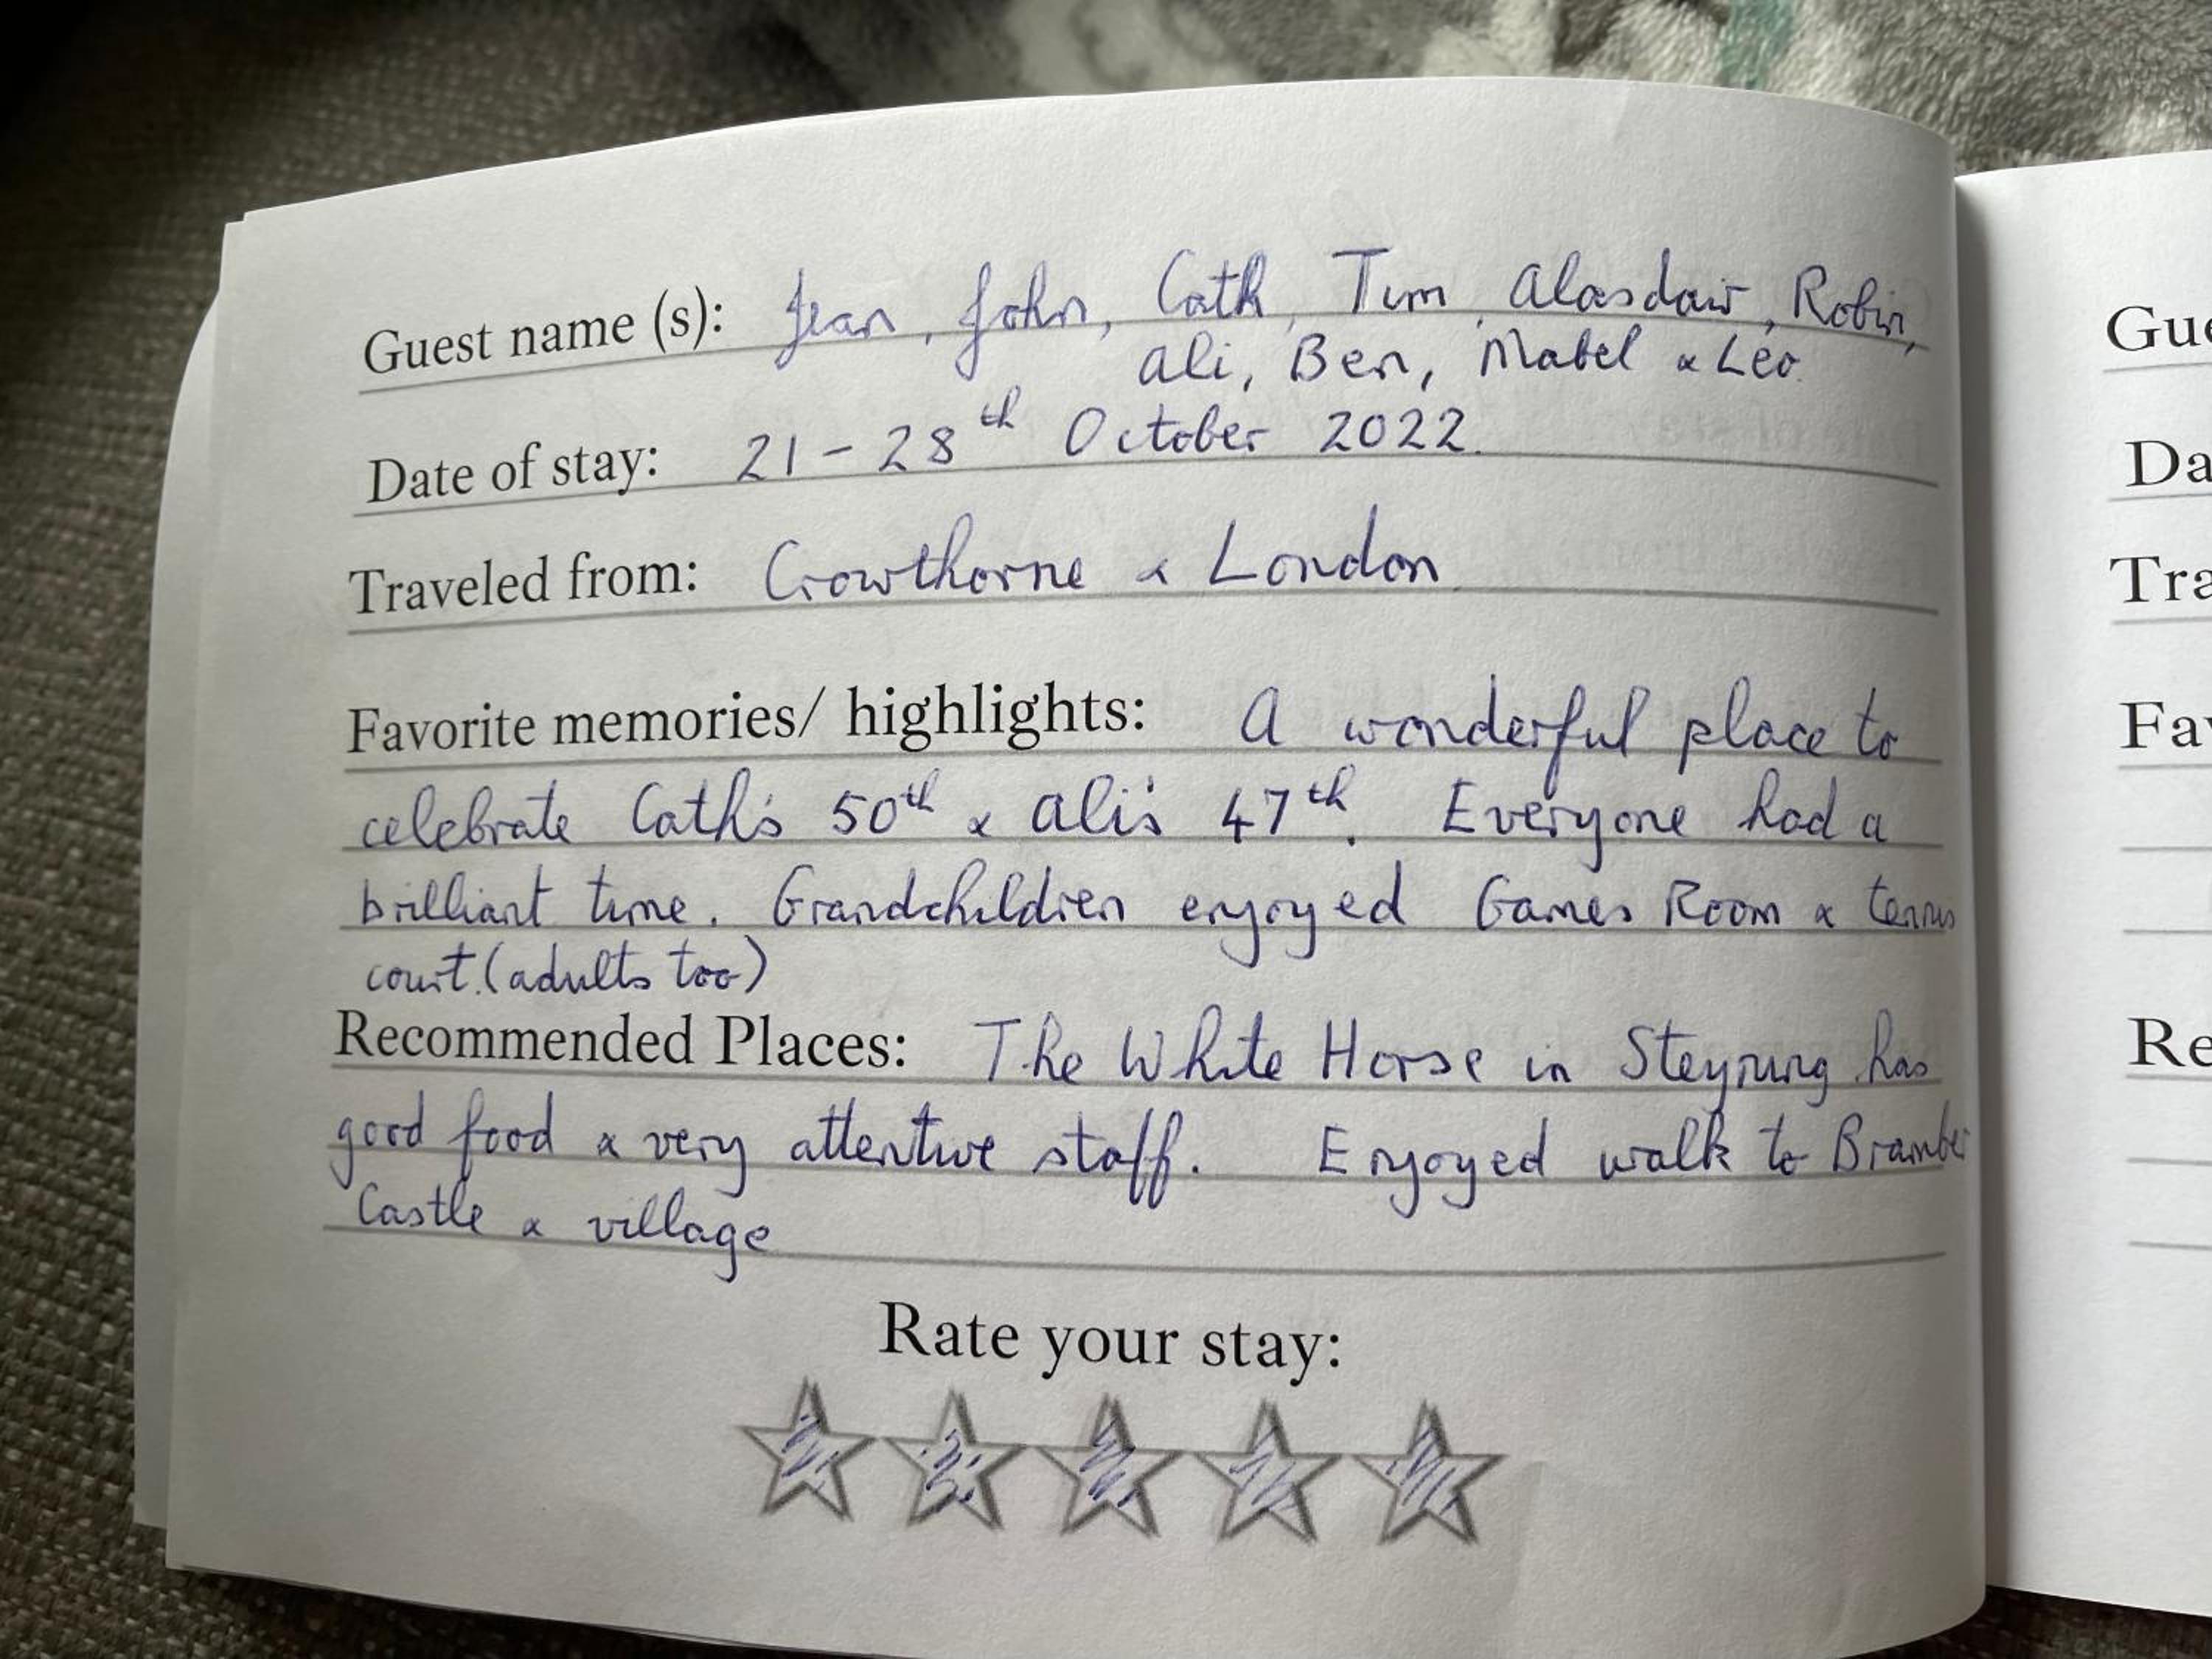 Guest name (s): Jean, John, Cath, Tim, Alasdair, Robin,
Ali, Ben, Mabel & Leo.
Date of stay: 21-28th October 2022.
Traveled from: Crowthorne & London
Favorite memories/ highlights: A wonderful place to
celebrate Cath's 50th & Ali's 47th. Everyone had a
brilliant time. Grandchildren enjoyed Games Room & tennis
court. (adults too)
Recommended Places: The White Horse in Steyning has
good food & very attentive staff. Enjoyed walk to Bramber
Castle & village
Rate your stay:
Gue
Da
Tra
Fav
Re